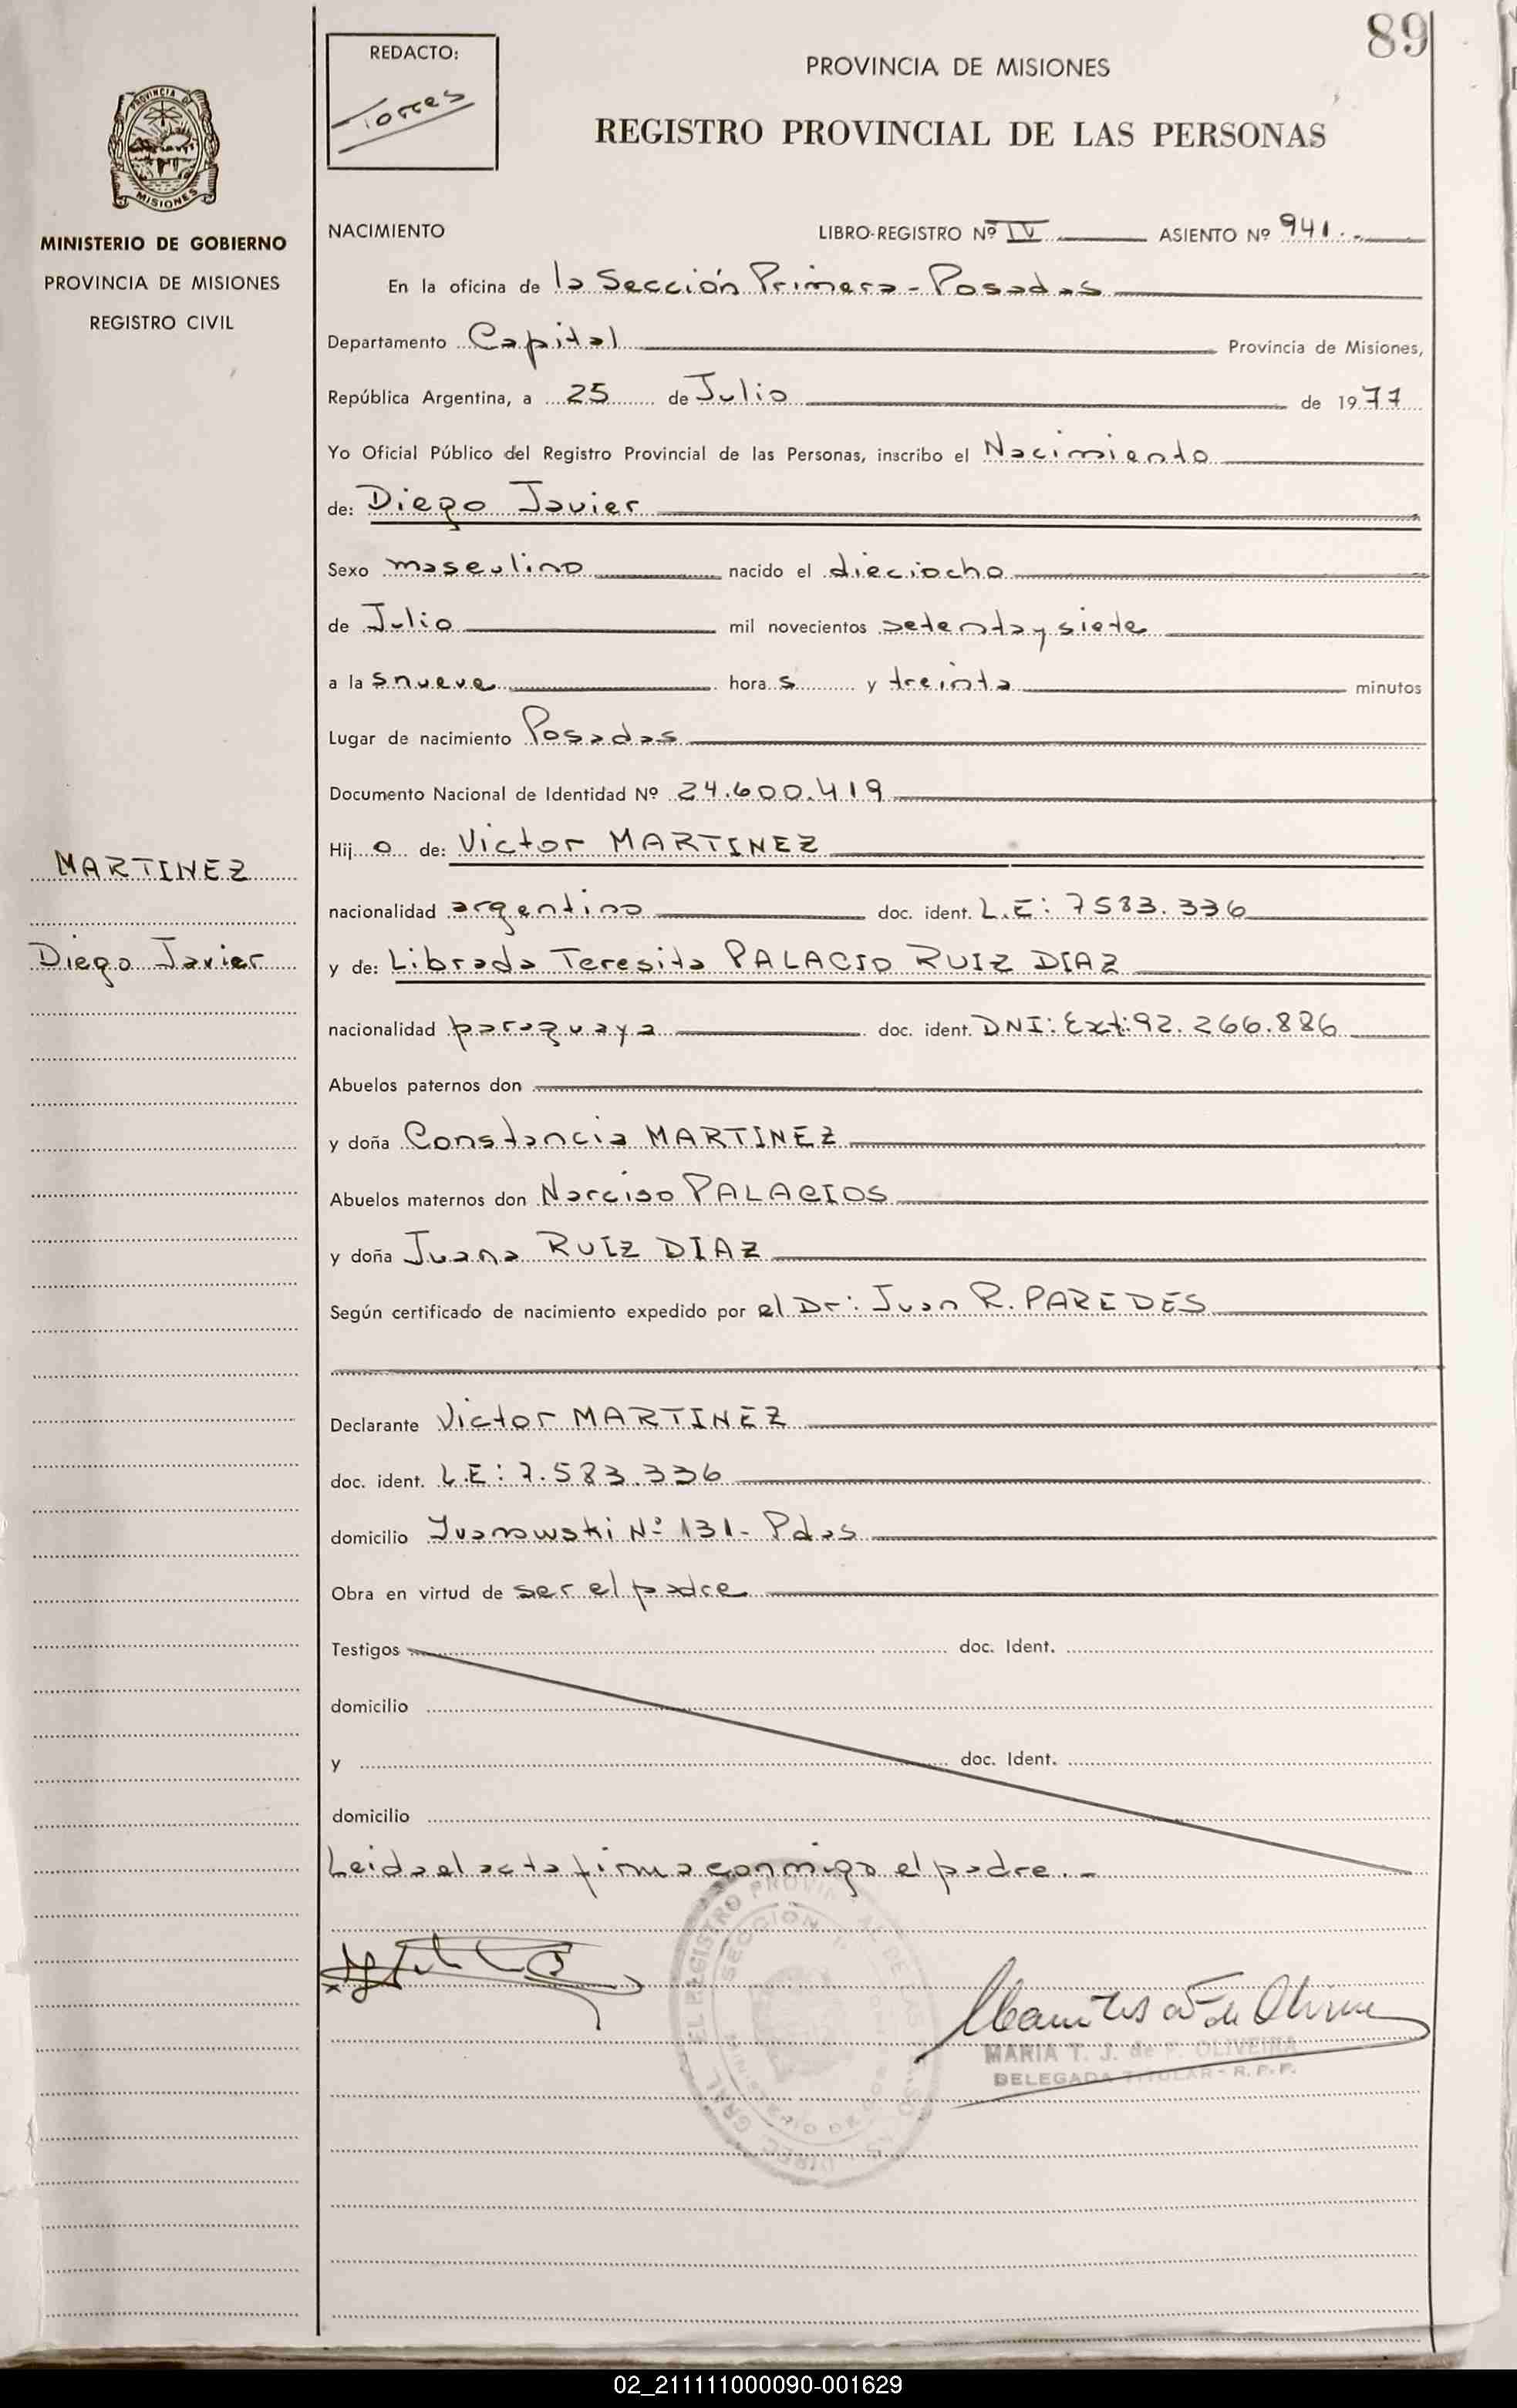 89
REDACTO:
Torres
PROVINCIA DE MISIONES
REGISTRO PROVINCIAL DE LAS PERSONAS
PROVINCIA DE
MISIONES
MINISTERIO DE GOBIERNO
PROVINCIA DE MISIONES
REGISTRO CIVIL
NACIMIENTO LIBRO-REGISTRO Nº IV ASIENTO Nº 941.-
En la oficina de la Sección Primera-Posadas
Departamento Capital Provincia de Misiones,
República Argentina, a 25 de Julio de 1977
Yo Oficial Público del Registro Provincial de las Personas, inscribo el Nacimiento
de: Diego Javier
Sexo masculino nacido el dieciocho
de Julio mil novecientos setenta y siete
a las nueve horas y treinta minutos
Lugar de nacimiento Posadas
Documento Nacional de Identidad Nº 24.600.419
Hijo de: Victor MARTINEZ
MARTINEZ
nacionalidad argentino doc. ident. L.E: 7583.336
Diego Javier
y de: Librada Teresita PALACIO RUIZ DIAZ
nacionalidad paraguaya doc. ident. DNI: Ext: 92.266.886
Abuelos paternos don
y doña Constancia MARTINEZ
Abuelos maternos don Narciso PALACIOS
y doña Juana RUIZ DIAZ
Según certificado de nacimiento expedido por el Dr: Juan R. PAREDES
Declarante Victor MARTINEZ
doc. ident. L.E: 7.583.336
domicilio Ivanowski Nº 131- Pdas
Obra en virtud de ser el padre
Testigos doc. Ident.
domicilio
y doc. Ident.
domicilio
Leida el acta firma conmigo el padre.-
MARIA T. J. de F. OLIVEIRA
DELEGADA TITULAR - R. P. P.
02_211111000090-001629